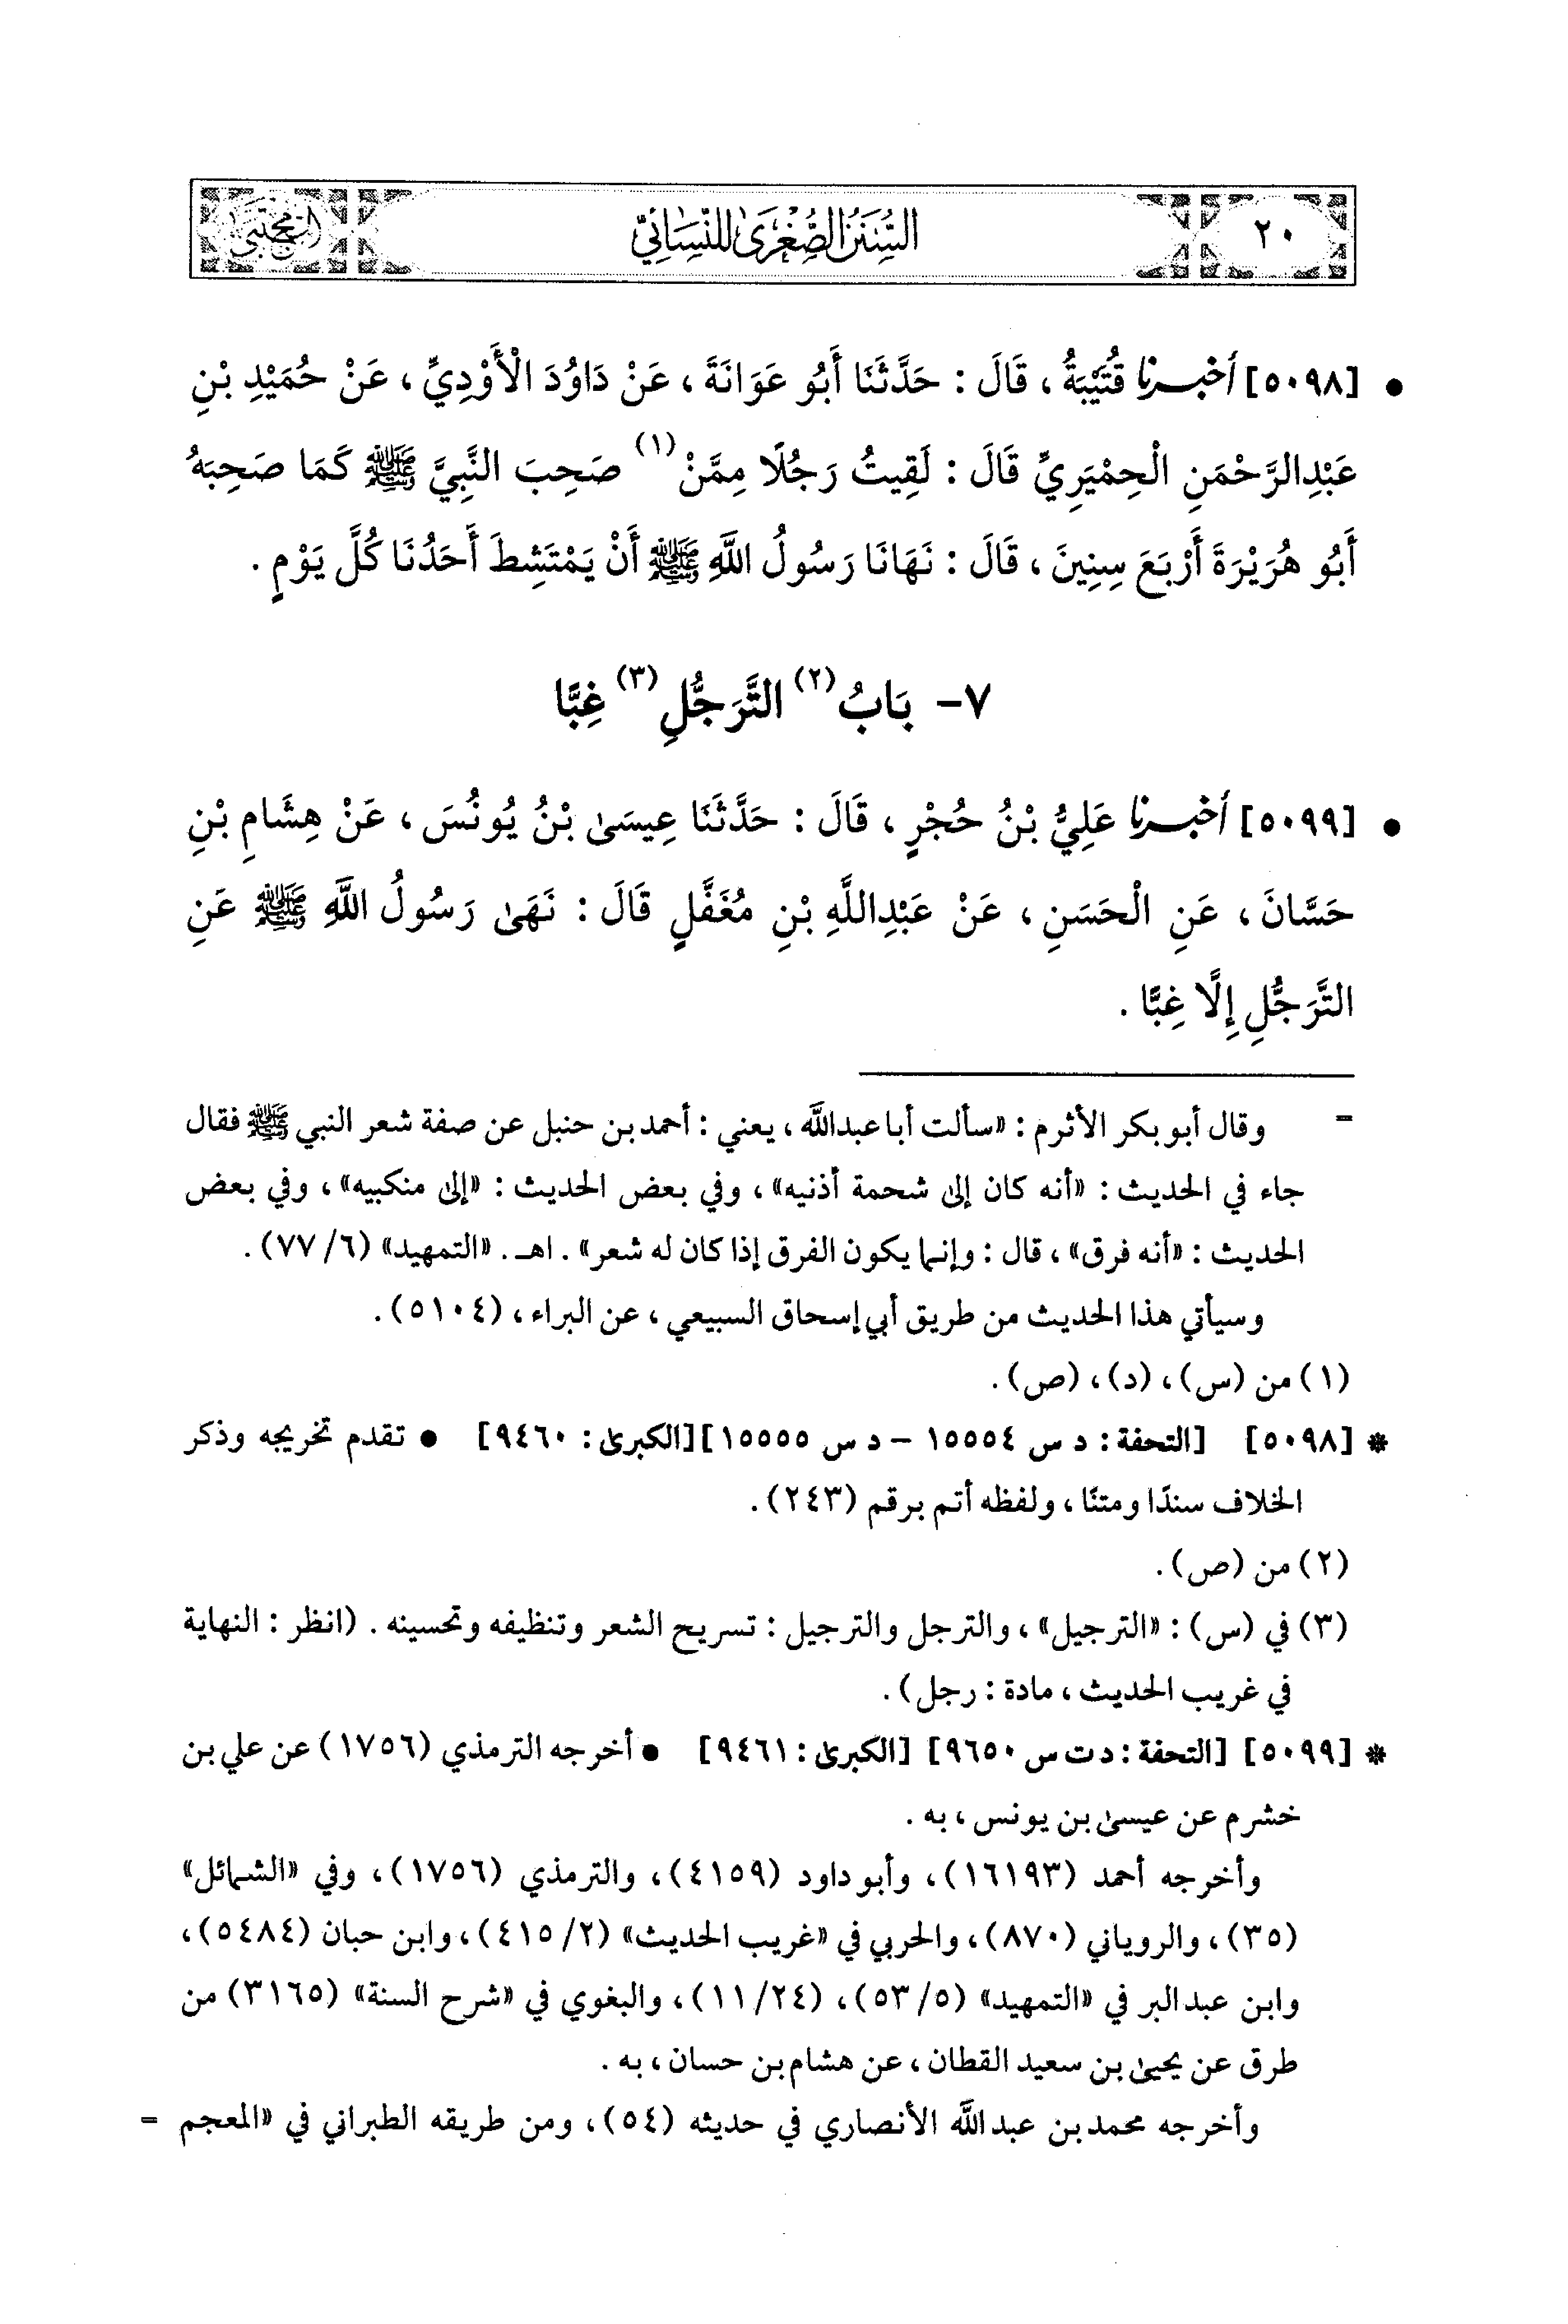 ٢٠
السُّنَنُ الصُّغْرَىٰ لِلنَّسَائِيِّ
المجتبى
• [٥٠٩٨] أَخْبَرَنَا قُتَيْبَةُ ، قَالَ : حَدَّثَنَا أَبُو عَوَانَةَ ، عَنْ دَاوُدَ الْأَوْدِيِّ ، عَنْ حُمَيْدِ بْنِ
عَبْدِالرَّحْمَنِ الْحِمْيَرِيِّ قَالَ : لَقِيتُ رَجُلًا مِمَّنْ (١) صَحِبَ النَّبِيَّ ﷺ كَمَا صَحِبَهُ
أَبُو هُرَيْرَةَ أَرْبَعَ سِنِينَ ، قَالَ : نَهَانَا رَسُولُ اللَّهِ ﷺ أَنْ يَمْتَشِطَ أَحَدُنَا كُلَّ يَوْمٍ .
٧- بَابُ (٢) التَّرَجُّلِ (٣) غِبًّا
• [٥٠٩٩] أَخْبَرَنَا عَلِيُّ بْنُ حُجْرٍ ، قَالَ : حَدَّثَنَا عِيسَىٰ بْنُ يُونُسَ ، عَنْ هِشَامِ بْنِ
حَسَّانَ ، عَنِ الْحَسَنِ ، عَنْ عَبْدِاللَّهِ بْنِ مُغَفَّلٍ قَالَ : نَهَىٰ رَسُولُ اللَّهِ ﷺ عَنِ
التَّرَجُّلِ إِلَّا غِبًّا .
= وقال أبو بكر الأثرم : «سألت أبا عبدالله ، يعني : أحمد بن حنبل عن صفة شعر النبي ﷺ فقال
جاء في الحديث : «أنه كان إلى شحمة أذنيه» ، وفي بعض الحديث : «إلى منكبيه» ، وفي بعض
الحديث : «أنه فرق» ، قال : وإنما يكون الفرق إذا كان له شعر» . اهـ . «التمهيد» (٦/ ٧٧) .
وسيأتي هذا الحديث من طريق أبي إسحاق السبيعي ، عن البراء ، (٥١٠٤) .
(١) من (س) ، (د) ، (ص) .
* [٥٠٩٨] [التحفة : د س ١٥٥٥٤ - د س ١٥٥٥٥] [الكبرى : ٩٤٦٠] • تقدم تخريجه وذكر
الخلاف سندًا ومتنًا ، ولفظه أتم برقم (٢٤٣) .
(٢) من (ص) .
(٣) في (س) : «الترجيل» ، والترجل والترجيل : تسريح الشعر وتنظيفه وتحسينه . (انظر : النهاية
في غريب الحديث ، مادة : رجل) .
* [٥٠٩٩] [التحفة : د ت س ٩٦٥٠] [الكبرى : ٩٤٦١] • أخرجه الترمذي (١٧٥٦) عن علي بن
خشرم عن عيسى بن يونس ، به .
وأخرجه أحمد (١٦١٩٣) ، وأبو داود (٤١٥٩) ، والترمذي (١٧٥٦) ، وفي «الشمائل»
(٣٥) ، والروياني (٨٧٠) ، والحربي في «غريب الحديث» (٢/ ٤١٥) ، وابن حبان (٥٤٨٤) ،
وابن عبد البر في «التمهيد» (٥/ ٥٣) ، (٢٤/ ١١) ، والبغوي في «شرح السنة» (٣١٦٥) من
طرق عن يحيى بن سعيد القطان ، عن هشام بن حسان ، به .
وأخرجه محمد بن عبد الله الأنصاري في حديثه (٥٤) ، ومن طريقه الطبراني في «المعجم =